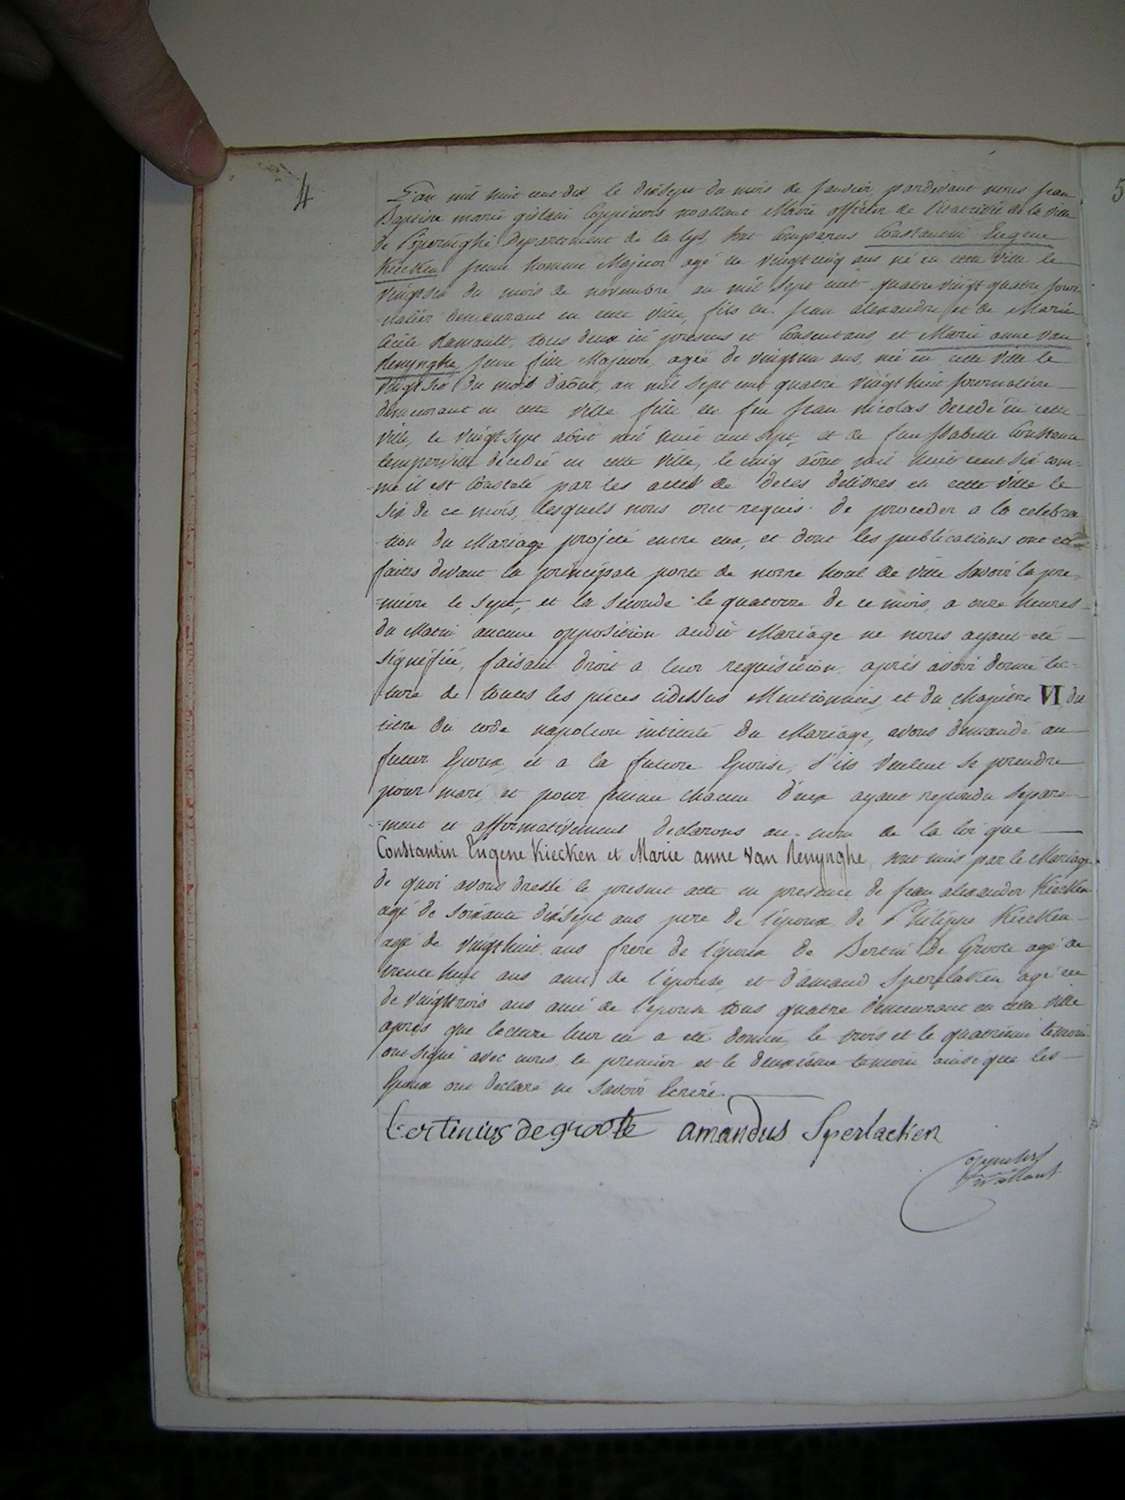 4
5
L'an mil huit cent dix le dixsept du mois de Janvier, pardevant nous Jean
Baptiste marie gislain Coppieters wallant Maire officier de l'Etat civil de la ville
de Poperinghe Departement de la Lys, sont Comparus Constantin Eugene
Kiecken jeune homme Majeur agé de vingtcinq ans né en cette ville le
vingtsix du mois de novembre an mil sept cent quatre vingt quatre jour-
nalier demeurant en cette ville, fils de Jean alexandre et de Marie
Cecile Ramault, tous deux ici presens et Consentans et Marie anne van
Renynghe jeune fille Majeure, agée de vingtun ans, née en cette ville le
vingtsix du mois d'août, an mil sept cent quatre vingt huit journaliere
demeurant en cette ville fille de feu Jean Nicolas decedé en cette
ville, le vingt sept août mil huit cent sept, et de feue Isabelle Constance
decedée en cette ville, le cinq août mil huit cent six com-
me il est Constaté par les actes de deces delivrés en cette ville le
six de ce mois, lesquels nous ont requis de proceder a la celebra
tion du Mariage projeté entre eux, et dont les publications ont eté
faites devant la principale porte de notre hotel de ville Savoir la pre-
-miere le sept, et la seconde le quatorze de ce mois, a onze heures
du Matin aucune opposition audit Mariage ne nous ayant eté
signifiée, faisant droit a leur requisition, aprés avoir donné lec-
ture de toutes les pieces cidessus Mentionnées, et du chapitre VI du
titre du code napoleon intitulé Du Mariage, avons demandé au
futur Epoux, et a la future Epouse, s'ils veulent se prendre
pour mari et pour femme chacun d'eux ayant repondu separe-
-ment et affirmativement declarons au nom de la loi que
Constantin Eugene Kiecken et Marie anne van Renynghe, sont unis par le Mariage
de quoi avons dressé le present acte en presence de Jean alexander Kiecken
agé de soixante dixsept ans pere de l'époux de Philippe Kiecken
agé de vingthuit ans frere de l'époux de De Groote agé de
trente huit ans ami de l'épouse, et d'amand Sperlaken agé
de vingttrois ans ami de l'epouse tous quatre demeurant en cette ville
après que lecture leur en a eté donnée, le trois et le quatrieme temoin
ont signé avec nous le premier et le deuxième temoin ainsi que les
Epoux ont declaré ne savoir Ecrire.
degroote amandus Sperlacken
Coppieters
wallant